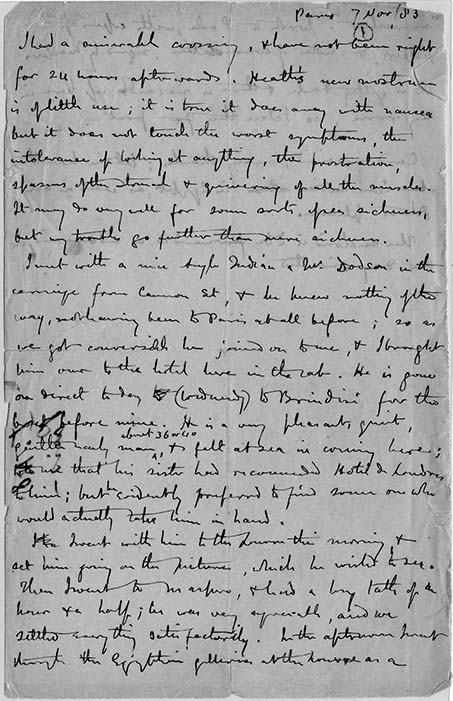 Paris 7 Nov/83
1
I had a miserable crossing, & have not been right
for 24 hours afterwards. Heath's new nostrum
is of little use; it is true it does away with nausea
but it does not touch the worst symptoms, the
intolerance of looking at anything, the prostration,
spasms of the stomach & quivering of all the muscles.
It may do very well for some sorts of sea sickness,
but my troubles go further than mere sickness.
I met with a nice Anglo Indian a Mr. Dodson in the
carriage from Cannon St, & he knew nothing of the
way, not having been to Paris at all before; so as
we got conversable he joined on to me, & I brought
him over to the hotel here in the cab. He is gone
on direct to day (Wednesday) to Brindisi for the
boat before mine. He is a very pleasant, quiet,
gentlemanly man, about 36 or 40 & felt at sea in coming here;
told me that his sister had recommended Hotel de Londres
to him; but he evidently preferred to find some one who
would actually take him in hand.
I went with him to the Louvre this morning &
set him going on the pictures, which he wished to see.
Then I went to Maspero, & had a long talk of an
hour & a half; he was very agreeable, and we
settled everything satisfactorily. In the afternoon I went
through the Egyptian galleries at the Louvre as a